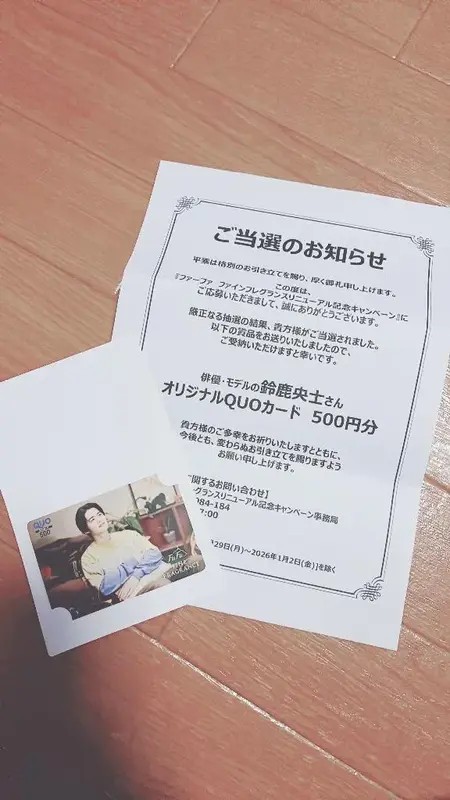 ご当選のお知らせ
平素は格別のお引き立てを賜り、厚く御礼申し上げます。
この度は、
『ファーファ ファインフレグランスリニューアル記念キャンペーン』に
ご応募いただきまして、誠にありがとうございます。
厳正なる抽選の結果、貴方様がご当選されました。
以下の賞品をお送りいたしましたので、
ご受納いただけますと幸いです。
俳優・モデルの鈴鹿央士さん
オリジナルQUOカード 500円分
貴方様のご多幸をお祈りいたしますとともに、
今後とも、変わらぬお引き立てを賜りますよう
お願い申し上げます。
関するお問い合わせ】
グランスリニューアル記念キャンペーン事務局
984-184
7:00
29日(月)～2026年1月2日(金)]を除く
QUO
500
FaFa
FINE
FRAGRANCE